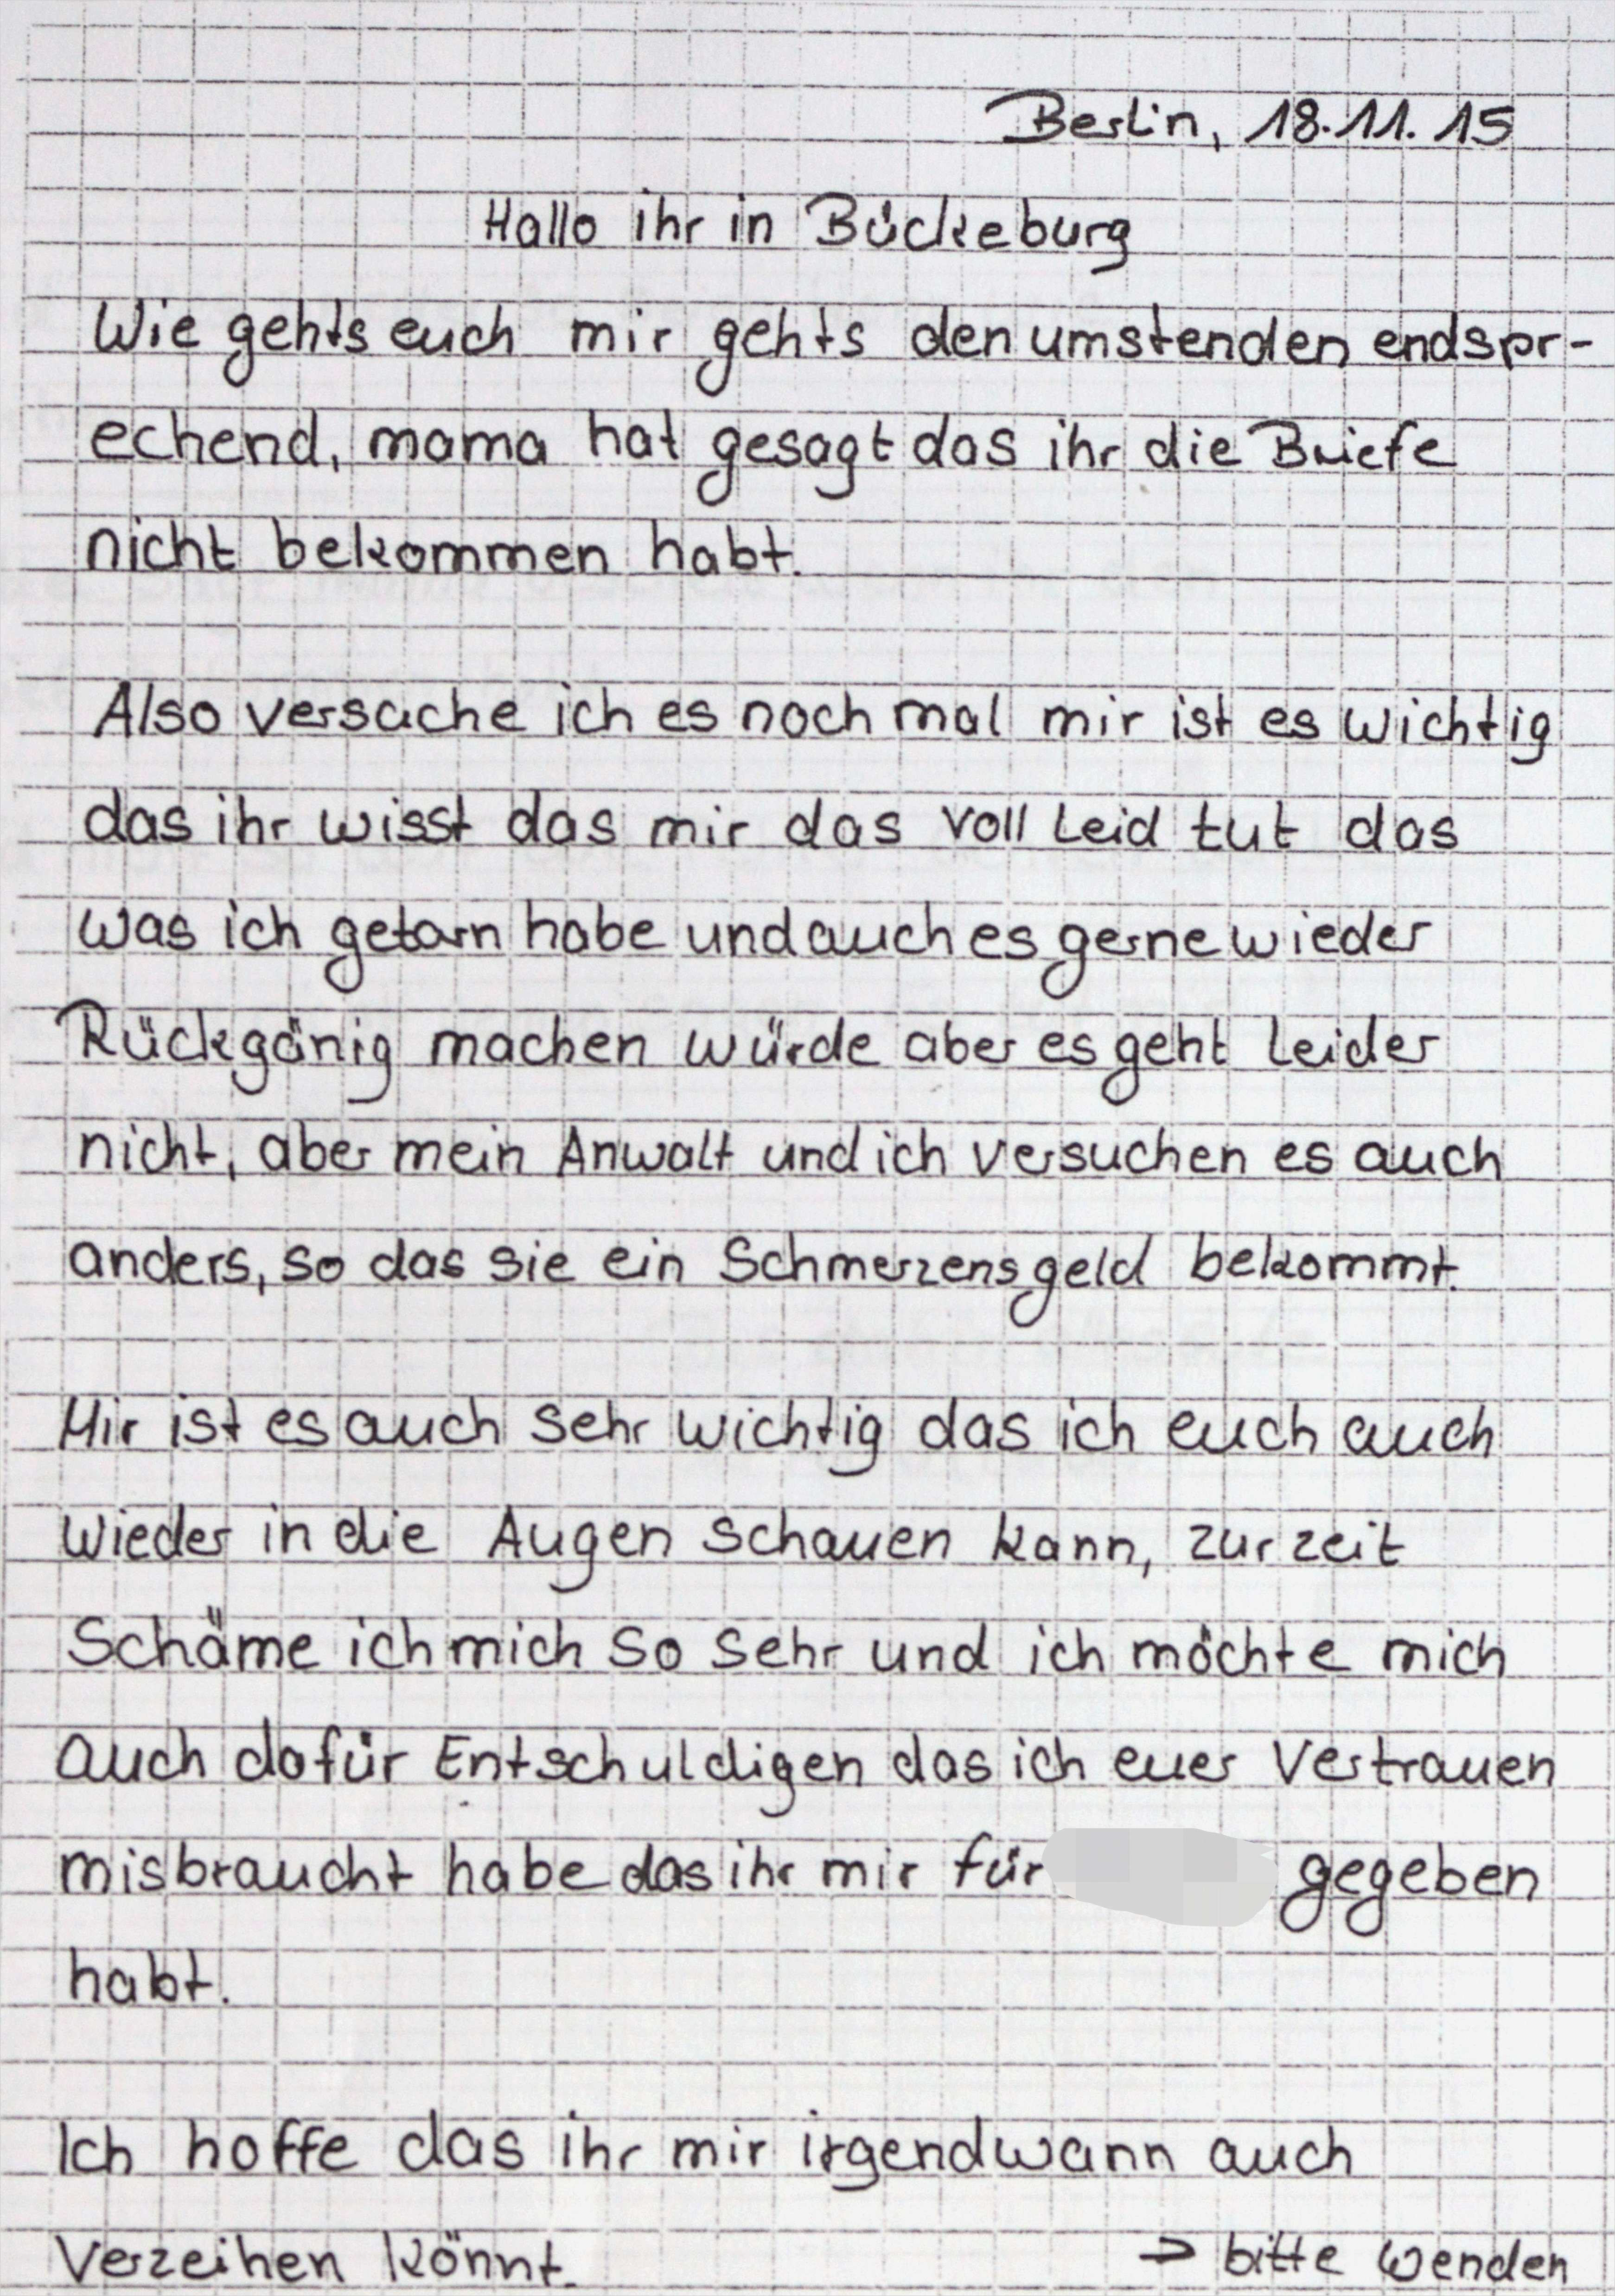 Berlin, 18.11.15
Hallo ihr in Bückeburg
Wie gehts euch mir gehts den umstenden endspr-
echend, mama hat gesagt das ihr die Briefe
nicht bekommen habt.
Also versuche ich es noch mal mir ist es wichtig
das ihr wisst das mir das voll Leid tut das
was ich getarn habe und auch es gerne wieder
Rückgänig machen würde aber es geht Leider
nicht, aber mein Anwalt und ich versuchen es auch
anders, so das sie ein Schmerzensgeld bekommt.
Mir ist es auch sehr wichtig das ich euch auch
wieder in die Augen schauen kann, zur zeit
Schäme ich mich so sehr und ich möchte mich
auch dafür Entschuldigen das ich euer Vertrauen
misbraucht habe das ihr mir für gegeben
habt.
Ich hoffe das ihr mir irgendwann auch
Verzeihen könnt. → bitte wenden